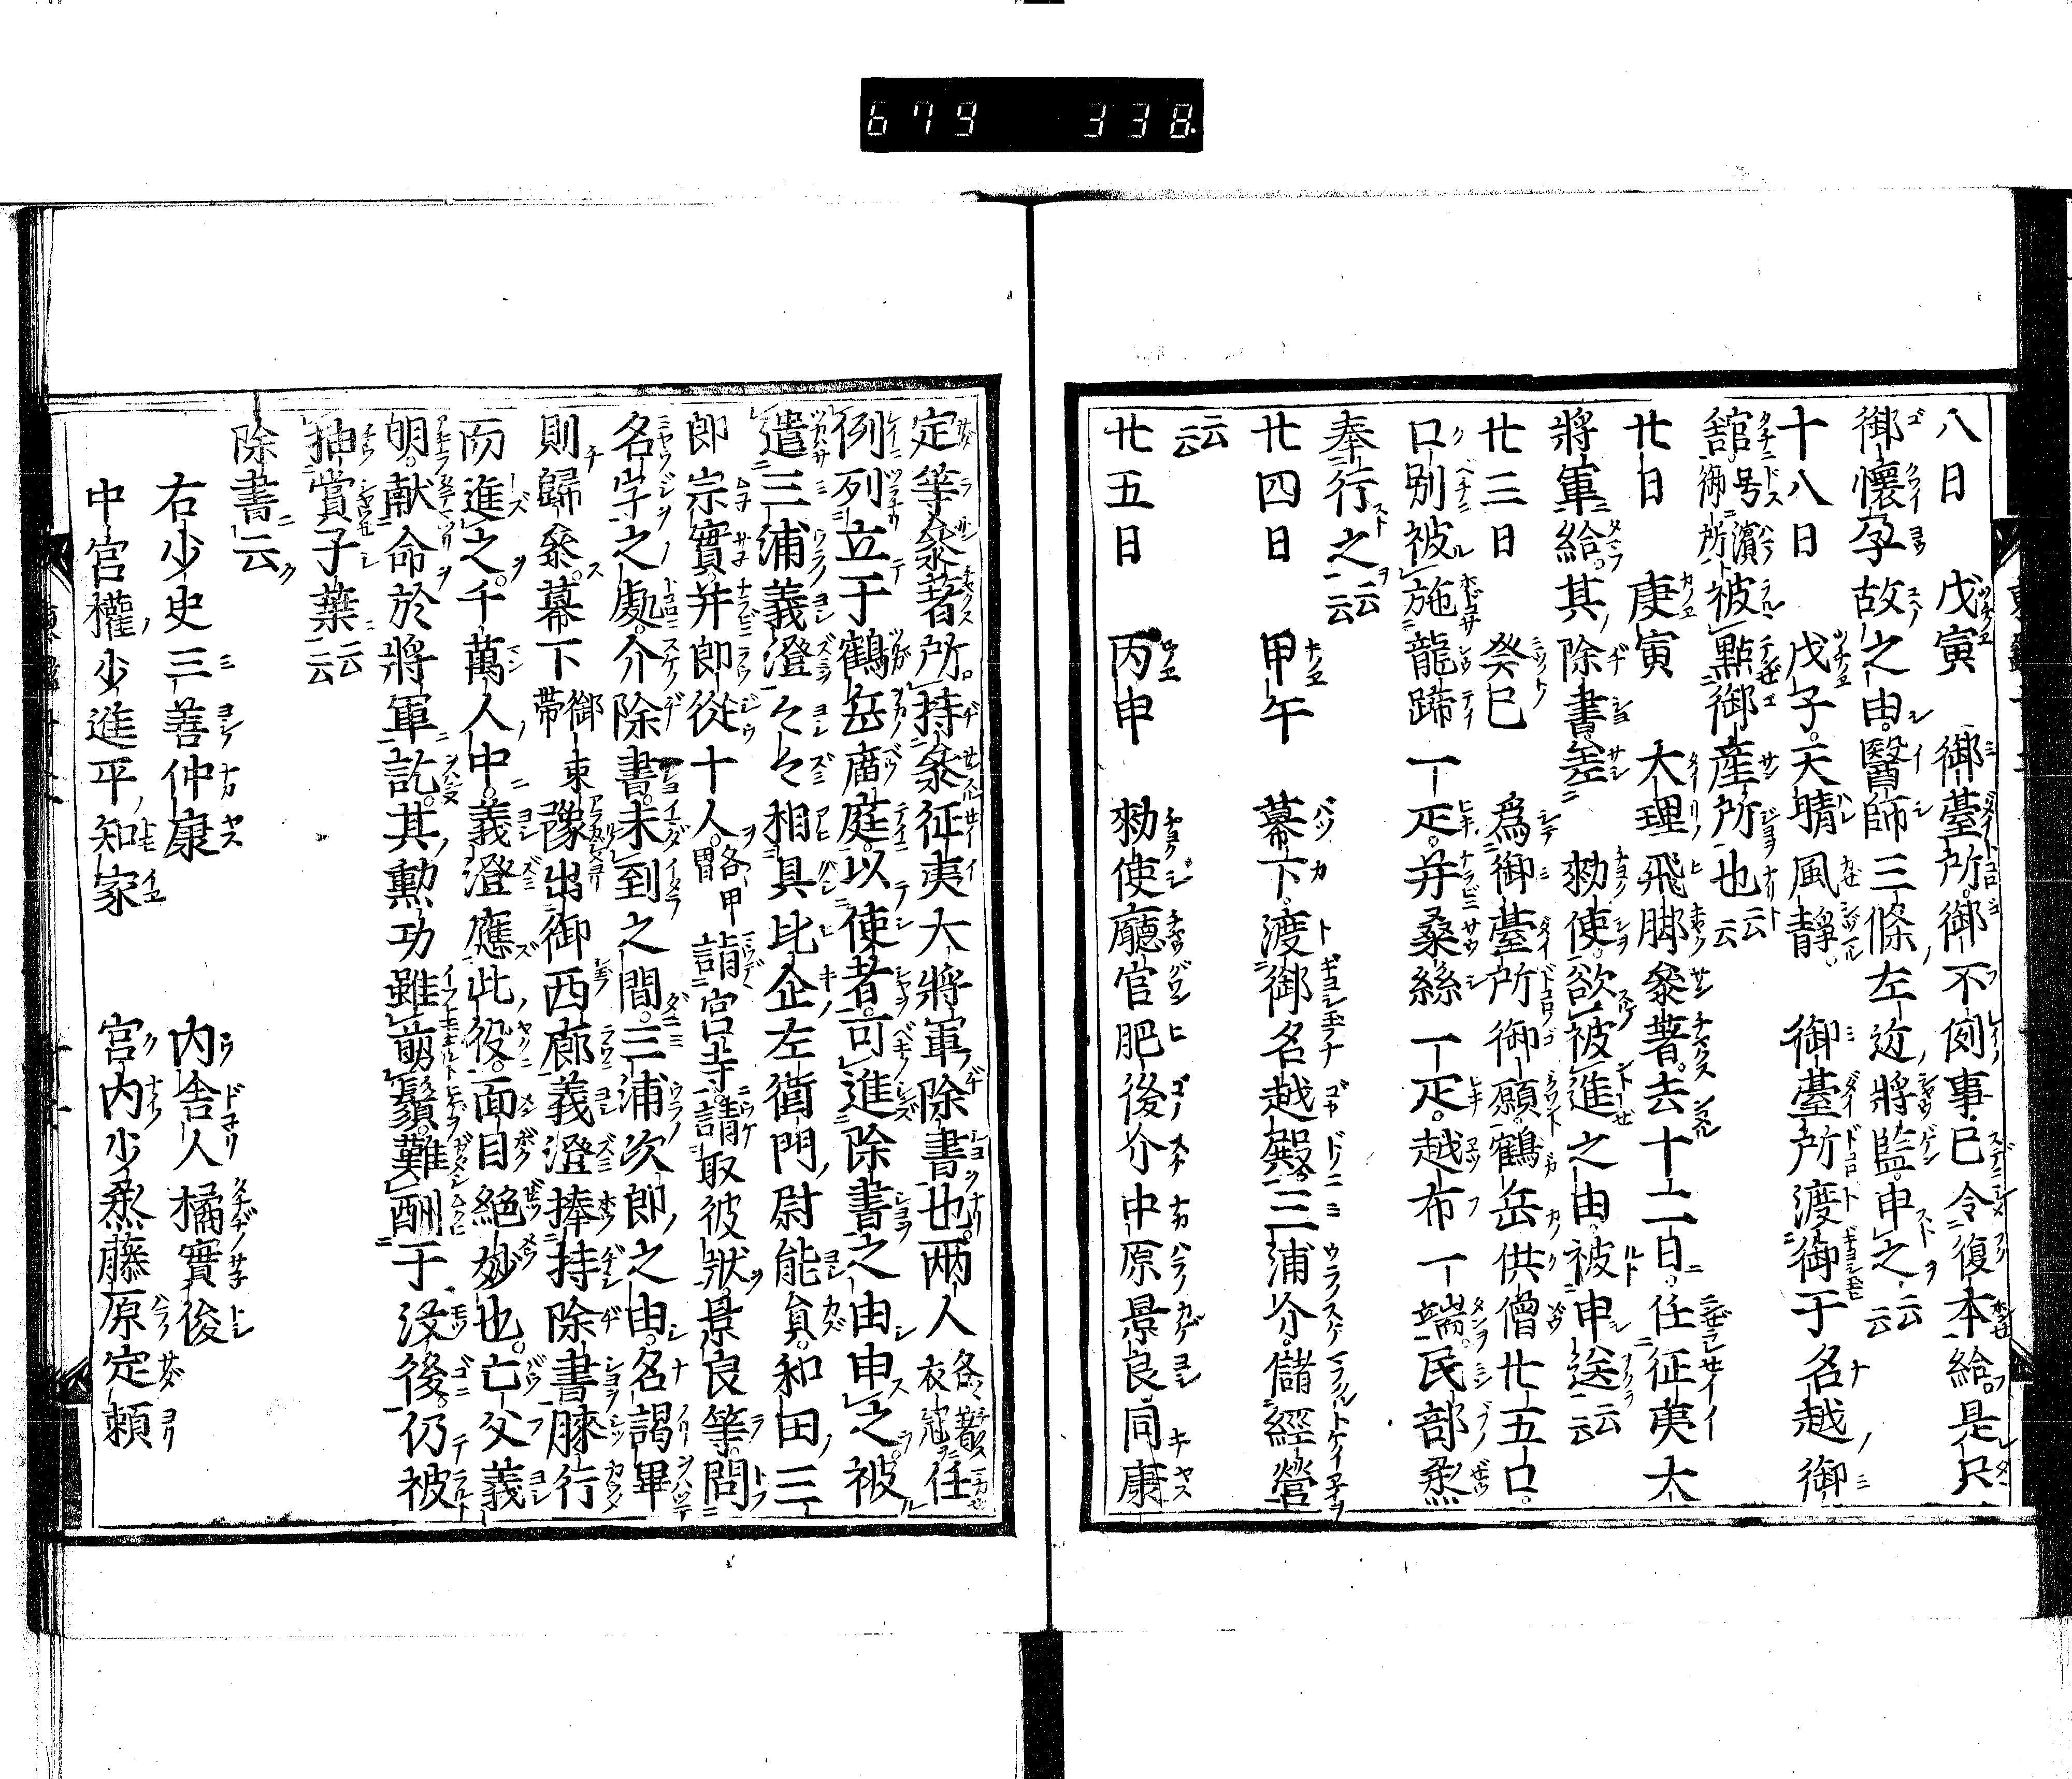 679 338
八日 戊寅 御臺所御不例事已令復本給是只
御懷孕故之由醫師三條左近將監申之云云
十八日 戊子天晴風靜 御臺所渡御于名越御
舘号濱御所被點御産所也云云
廿日 庚寅 大理飛脚參著去十二日任征夷大
將軍給其除書差 勅使欲被進之由被申送云云
廿三日 癸巳 爲御臺所御願鶴岳供僧廿五口
口別被施龍蹄一疋并桑絲一疋越布一端民部烝
奉行之云云
廿四日 甲午 幕下渡御名越殿三浦介儲經營
云云
廿五日 丙申 勅使廳官肥後介中原景良同康
定等參著所持參征夷大將軍除書也兩人各著衣冠任
例列立于鶴岳廟庭以使者可進除書之由申之被
遣三浦義澄々々相具比企左衛門尉能員和田三
郎宗實并郎從十人各甲冑詣宮寺請取彼狀景良等問
名字之處介除書未到之間三浦次郎之由名謁畢
則歸參幕下御束帶豫出御西廊義澄捧持除書膝行
而進之千萬人中義澄應此役面目絶妙也亡父義
明獻命於將軍訖其勳功雖剪鬚難酬于没後仍被
抽賞子葉云云
除書云
右少史三善仲康 内舎人橘實俊
中宮權少進平知家 宮内少烝藤原定頼